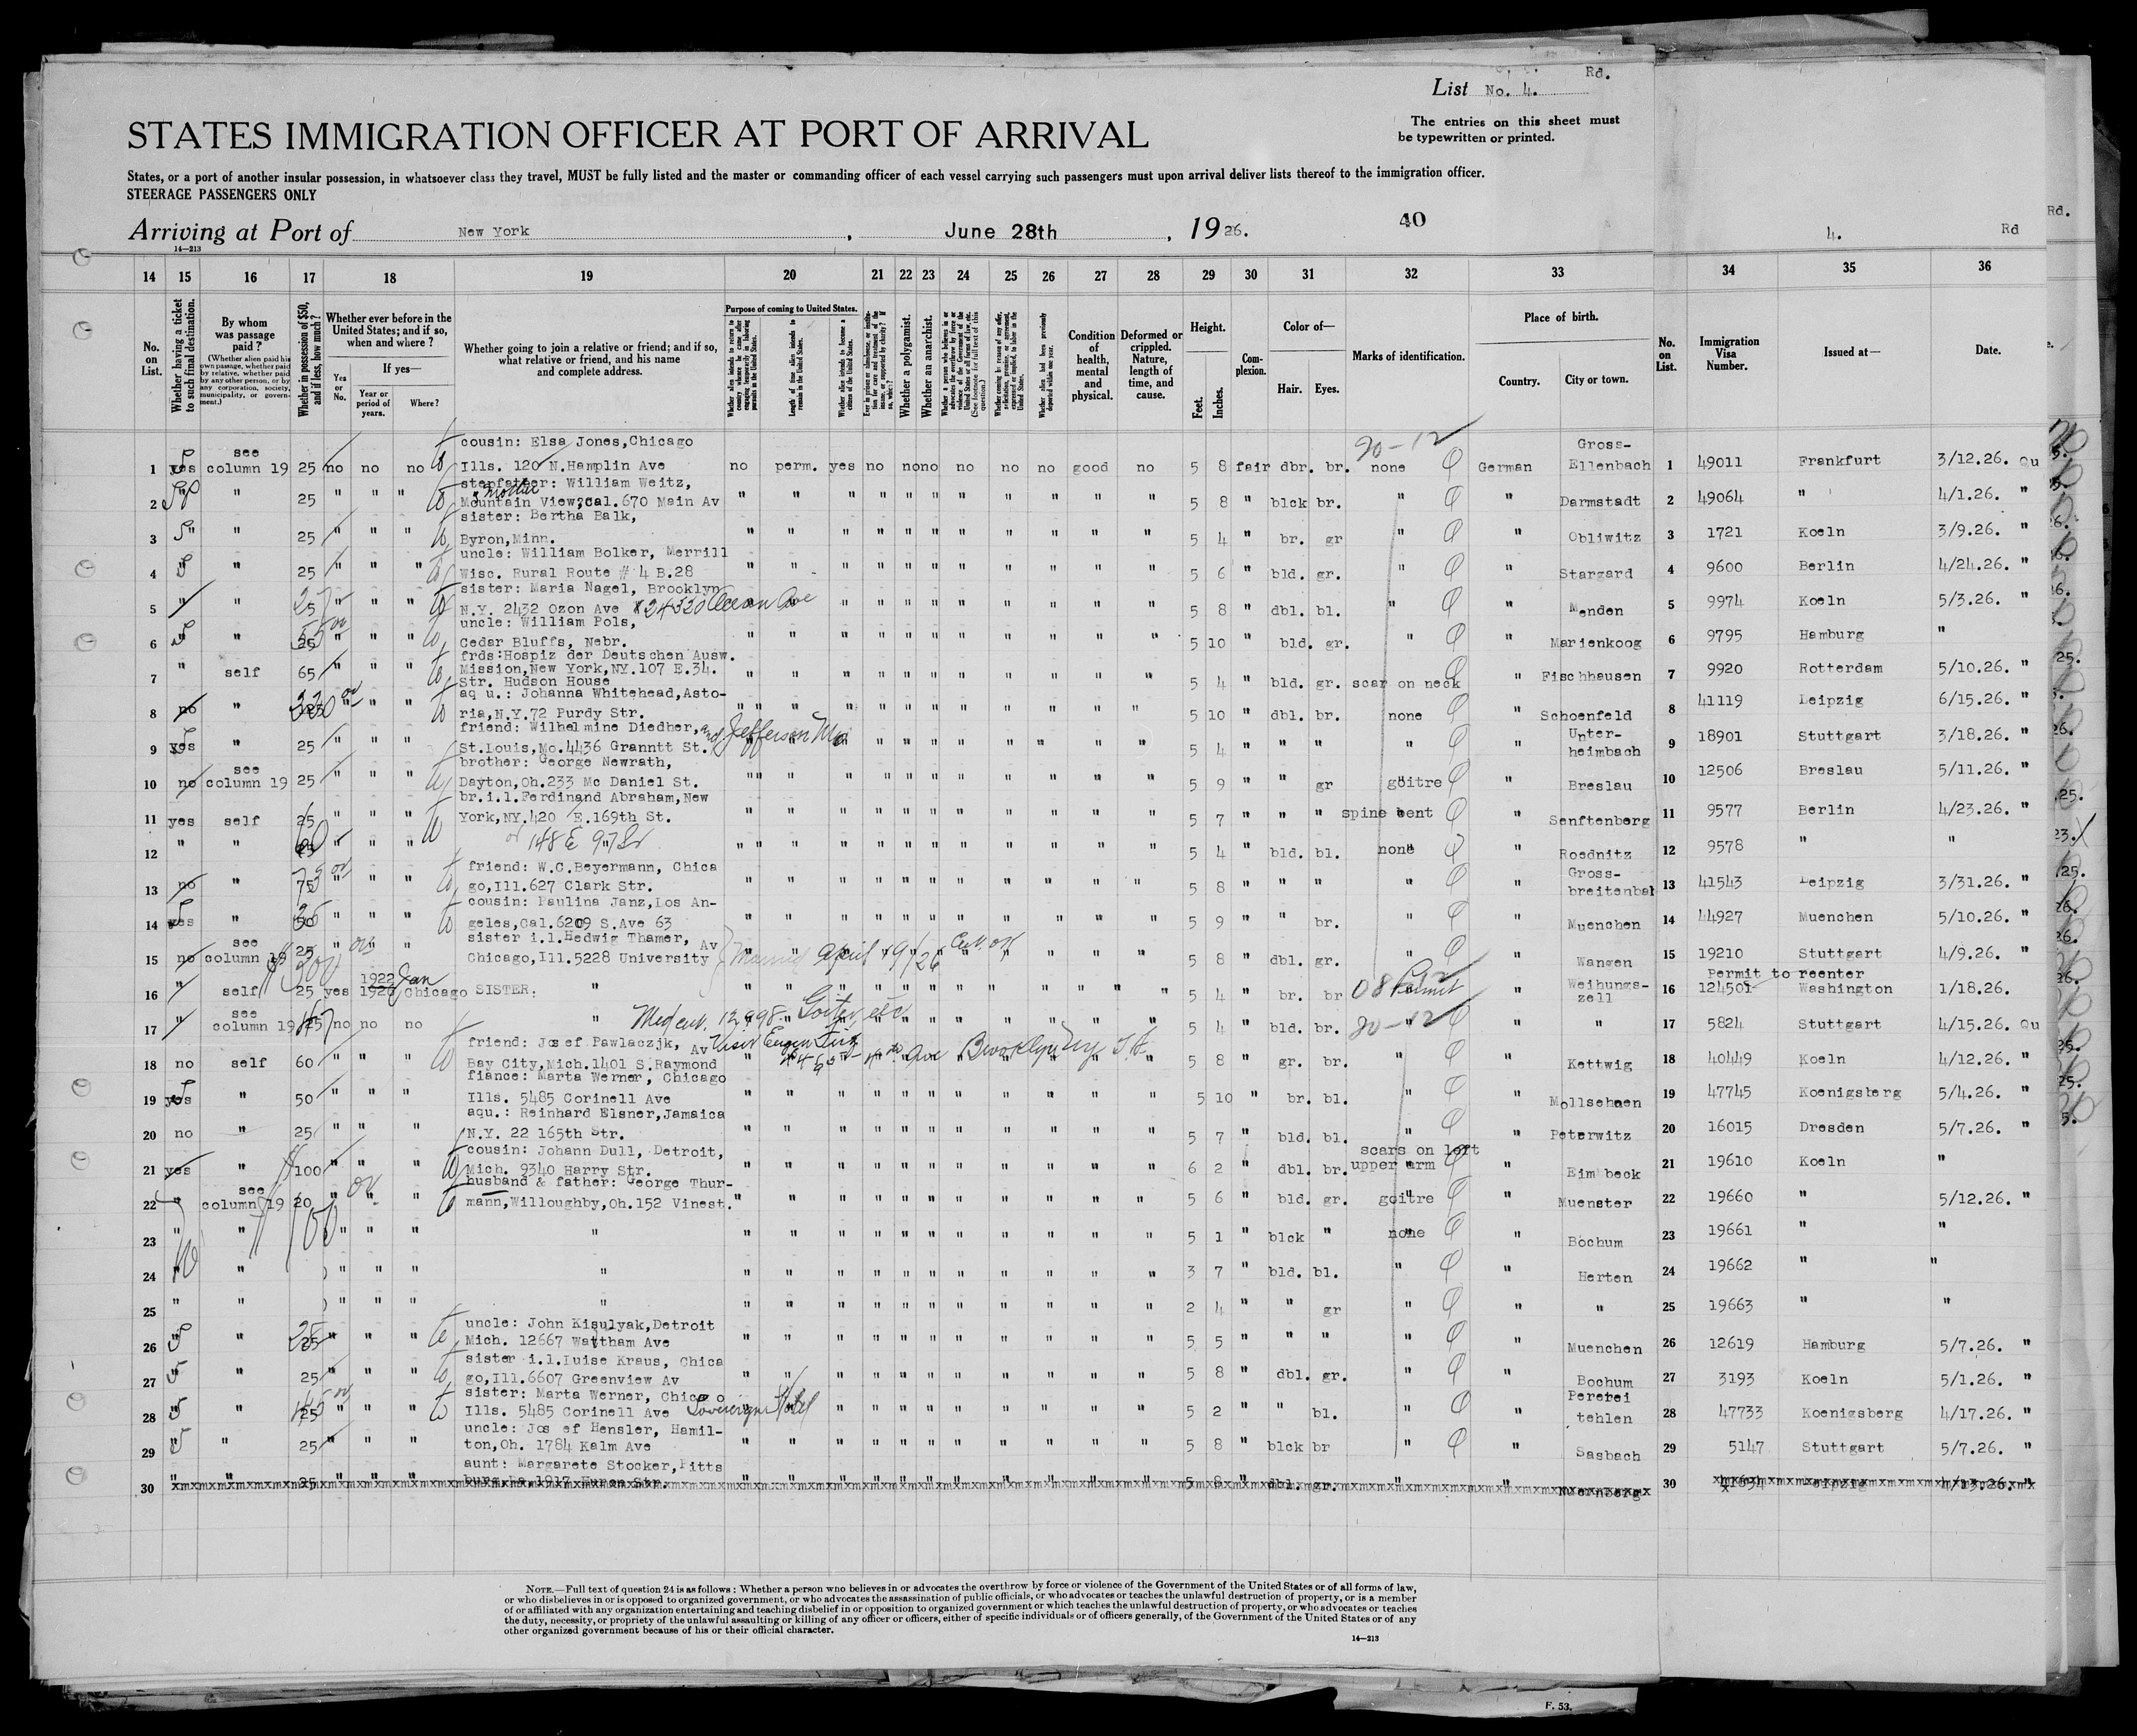 Rd.
List No. 4.
STATES IMMIGRATION OFFICER AT PORT OF ARRIVAL
The entries on this sheet must
be typewritten or printed.
States, or a port of another insular possession, in whatsoever class they travel, MUST be fully listed and the master or commanding officer of each vessel carrying such passengers must upon arrival deliver lists thereof to the immigration officer.
STEERAGE PASSENGERS ONLY
Arriving at Port of New York, June 28th, 1926.
40
4. Rd
Rd.
14—213
14 15 16 17 18 19 20 21 22 23 24 25 26 27 28 29 30 31 32 33 34 35 36
No. on List.
Whether having a ticket to such final destination.
By whom was passage paid?
(Whether alien paid his own passage, whether paid by relative, whether paid by any other person, or by any corporation, society, municipality, or government.)
Whether in possession of $50, and if less, how much?
Whether ever before in the United States; and if so, when and where?
Yes or No.
If yes—
Year or period of years.
Where?
Whether going to join a relative or friend; and if so, what relative or friend, and his name and complete address.
Purpose of coming to United States.
Length of time alien intends to remain in the United States.
Whether alien intends to become a citizen of the United States.
Whether a polygamist.
Whether an anarchist.
Condition of health, mental and physical.
Deformed or crippled. Nature, length of time, and cause.
Height.
Feet.
Inches.
Complexion.
Color of—
Hair.
Eyes.
Marks of identification.
Place of birth.
Country.
City or town.
No. on List.
Immigration Visa Number.
Issued at—
Date.
1 yes see column 19 25 no no no cousin: Elsa Jones, Chicago Ills. 120 N.Hamplin Ave no perm. yes no no no no no no good no 5 8 fair dbr. br. none German Gross-Ellenbach 1 49011 Frankfurt 3/12.26. Qu
90-12
2 " " 25 " " " stepfather: William Weitz, Mountain View, Cal. 670 Main Av " " " " " " " " " " " 5 8 " blck br. " " Darmstadt 2 49064 " 4/1.26. "
& mother
3 " " 25 " " " sister: Bertha Balk, Byron, Minn. " " " " " " " " " " " 5 4 " br. gr " " Obliwitz 3 1721 Koeln 3/9.26. "
4 " " 25 " " " uncle: William Bolker, Merrill Wisc. Rural Route # 4 B.28 " " " " " " " " " " " 5 6 " bld. gr. " " Stargard 4 9600 Berlin 4/24.26. "
5 " " 25 " " " sister: Maria Nagel, Brooklyn N.Y. 2432 Ozon Ave " " " " " " " " " " " 5 8 " dbl. bl. " " Menden 5 9974 Koeln 5/3.26. "
Ocean Ave
6 " " 25 " " " uncle: William Pols, Cedar Bluffs, Nebr. " " " " " " " " " " " 5 10 " bld. gr. " " Marienkoog 6 9795 Hamburg "
7 " self 65 " " " frds: Hospiz der Deutschen Ausw. Mission, New York, NY. 107 E.34. Str. Hudson House " " " " " " " " " " " 5 4 " bld. gr. scar on neck " Fischhausen 7 9920 Rotterdam 5/10.26. "
8 no " " " " aq u.: Johanna Whitehead, Astoria, N.Y. 72 Purdy Str. " " " " " " " " " " " 5 10 " dbl. br. none " Schoenfeld 8 41119 Leipzig 6/15.26. "
9 yes " 25 " " " friend: Wilhelmine Diedher, St.Louis, Mo. 4436 Granntt St. " " " " " " " " " " " 5 4 " " " " " Unter-heimbach 9 18901 Stuttgart 3/18.26. "
and Jefferson Mo
10 no see column 19 25 " " " brother: George Newrath, Dayton, Oh. 233 Mc Daniel St. " " " " " " " " " " " 5 9 " " gr goitre " Breslau 10 12506 Breslau 5/11.26. "
11 yes self 25 " " " br.i.l. Ferdinand Abraham, New York, NY. 420 E.169th St. " " " " " " " " " " " 5 7 " " " spine bent " Senftenberg 11 9577 Berlin 4/23.26. "
12 " " " " " or 148 E 97 St " " " " " " " " " " " 5 4 " bld. bl. none " Roednitz 12 9578 " "
13 no " 75 " " " friend: W.C. Beyermann, Chicago, Ill. 627 Clark Str. " " " " " " " " " " " 5 8 " " " " " Gross-breitenbah 13 41543 Leipzig 3/31.26. "
14 yes " 50 " " " cousin: Paulina Janz, Los Angeles, Cal. 6209 S.Ave 63 " " " " " " " " " " " 5 9 " " br. " " Muenchen 14 44927 Muenchen 5/10.26. "
15 no see column 19 25 " " " sister i.l. Hedwig Thamer, Chicago, Ill. 5228 University Av " " " " " " " " " " " 5 8 " dbl. gr. " " Wangen 15 19210 Stuttgart 4/9.26. "
Married April 19/26
16 " self 25 yes 1922 1920 Jan Chicago SISTER: " " " " " " " " " " " " 5 4 " br. br Permit " Weihungs-zell 16 Permit to reenter 124501 Washington 1/18.26.
17 see column 19 25 no no no " " " " " " " " " " " " 5 4 " bld. br. " " " 17 5824 Stuttgart 4/15.26. Qu
Med cert. 12998 Goiter etc
90-12
18 no self 60 " " " friend: Josef Pawlaczjk, Bay City, Mich. 1401 S.Raymond Av " " " " " " " " " " " 5 8 " gr. br. " " Kettwig 18 40449 Koeln 4/12.26. "
Ave Brooklyn Ny
19 yes " 50 " " " fiance: Marta Werner, Chicago Ills. 5485 Corinell Ave " " " " " " " " " " " 5 10 " br. bl. " " Mollsehnen 19 47745 Koenigsberg 5/4.26. "
20 no " 25 " " " aqu.: Reinhard Elsner, Jamaica N.Y. 22 165th Str. " " " " " " " " " " " 5 7 " bld. bl. " " Peterwitz 20 16015 Dresden 5/7.26. "
21 yes " $100 " " " cousin: Johann Dull, Detroit, Mich. 9340 Harry Str. " " " " " " " " " " " 6 2 " dbl. br. scars on left upper arm " Eimbeck 21 19610 Koeln "
22 " see column 19 20 " " " husband & father: George Thurmann, Willoughby, Oh. 152 Vinest. " " " " " " " " " " " 5 6 " bld. gr. goitre " Muenster 22 19660 " 5/12.26. "
23 " " " " " " " " " " " " " " " " " " 5 1 " blck " none " Bochum 23 19661 " "
24 " " " " " " " " " " " " " " " " " " 3 7 " bld. bl. " " Herten 24 19662 " "
25 " " " " " " " " " " " " " " " " " " 2 4 " " gr " " " 25 19663 " "
26 " " 25 " " " uncle: John Kisulyak, Detroit Mich. 12667 Waltham Ave " " " " " " " " " " " 5 5 " " " " " Muenchen 26 12619 Hamburg 5/7.26. "
27 " " 25 " " " sister i.l. Luise Kraus, Chicago, Ill. 6607 Greenview Av " " " " " " " " " " " 5 8 " dbl. gr. " " Bochum 27 3193 Koeln 5/1.26. "
28 " " 25 " " " sister: Marta Werner, Chicago Ills. 5485 Corinell Ave " " " " " " " " " " " 5 2 " " bl. " " tehlen 28 47733 Koenigsberg 4/17.26. "
Sovereign Hotel
29 " " 25 " " " uncle: Josef Hensler, Hamilton, Oh. 1784 Kalm Ave " " " " " " " " " " " 5 8 " blck br " " Sasbach 29 5147 Stuttgart 5/7.26. "
30 " " 25 " " " aunt: Margarete Stocker, Pittsburg, Pa. 1917 Huron Str. " " " " " " " " " " " 5 8 " dbl. gr. " " Nuernberg 30 41634 Leipzig 4/13.26. "
NOTE.—Full text of question 24 is as follows: Whether a person who believes in or advocates the overthrow by force or violence of the Government of the United States or of all forms of law,
or who disbelieves in or is opposed to organized government, or who advocates the assassination of public officials, or who advocates or teaches the unlawful destruction of property, or is a member
of or affiliated with any organization entertaining and teaching disbelief in or opposition to organized government or which teaches the unlawful destruction of property, or who advocates or teaches
the duty, necessity, or propriety of the unlawful assaulting or killing of any officer or officers, either of specific individuals or of officers generally, of the Government of the United States or of any
other organized government because of his or their official character.
14—213
F. 53.